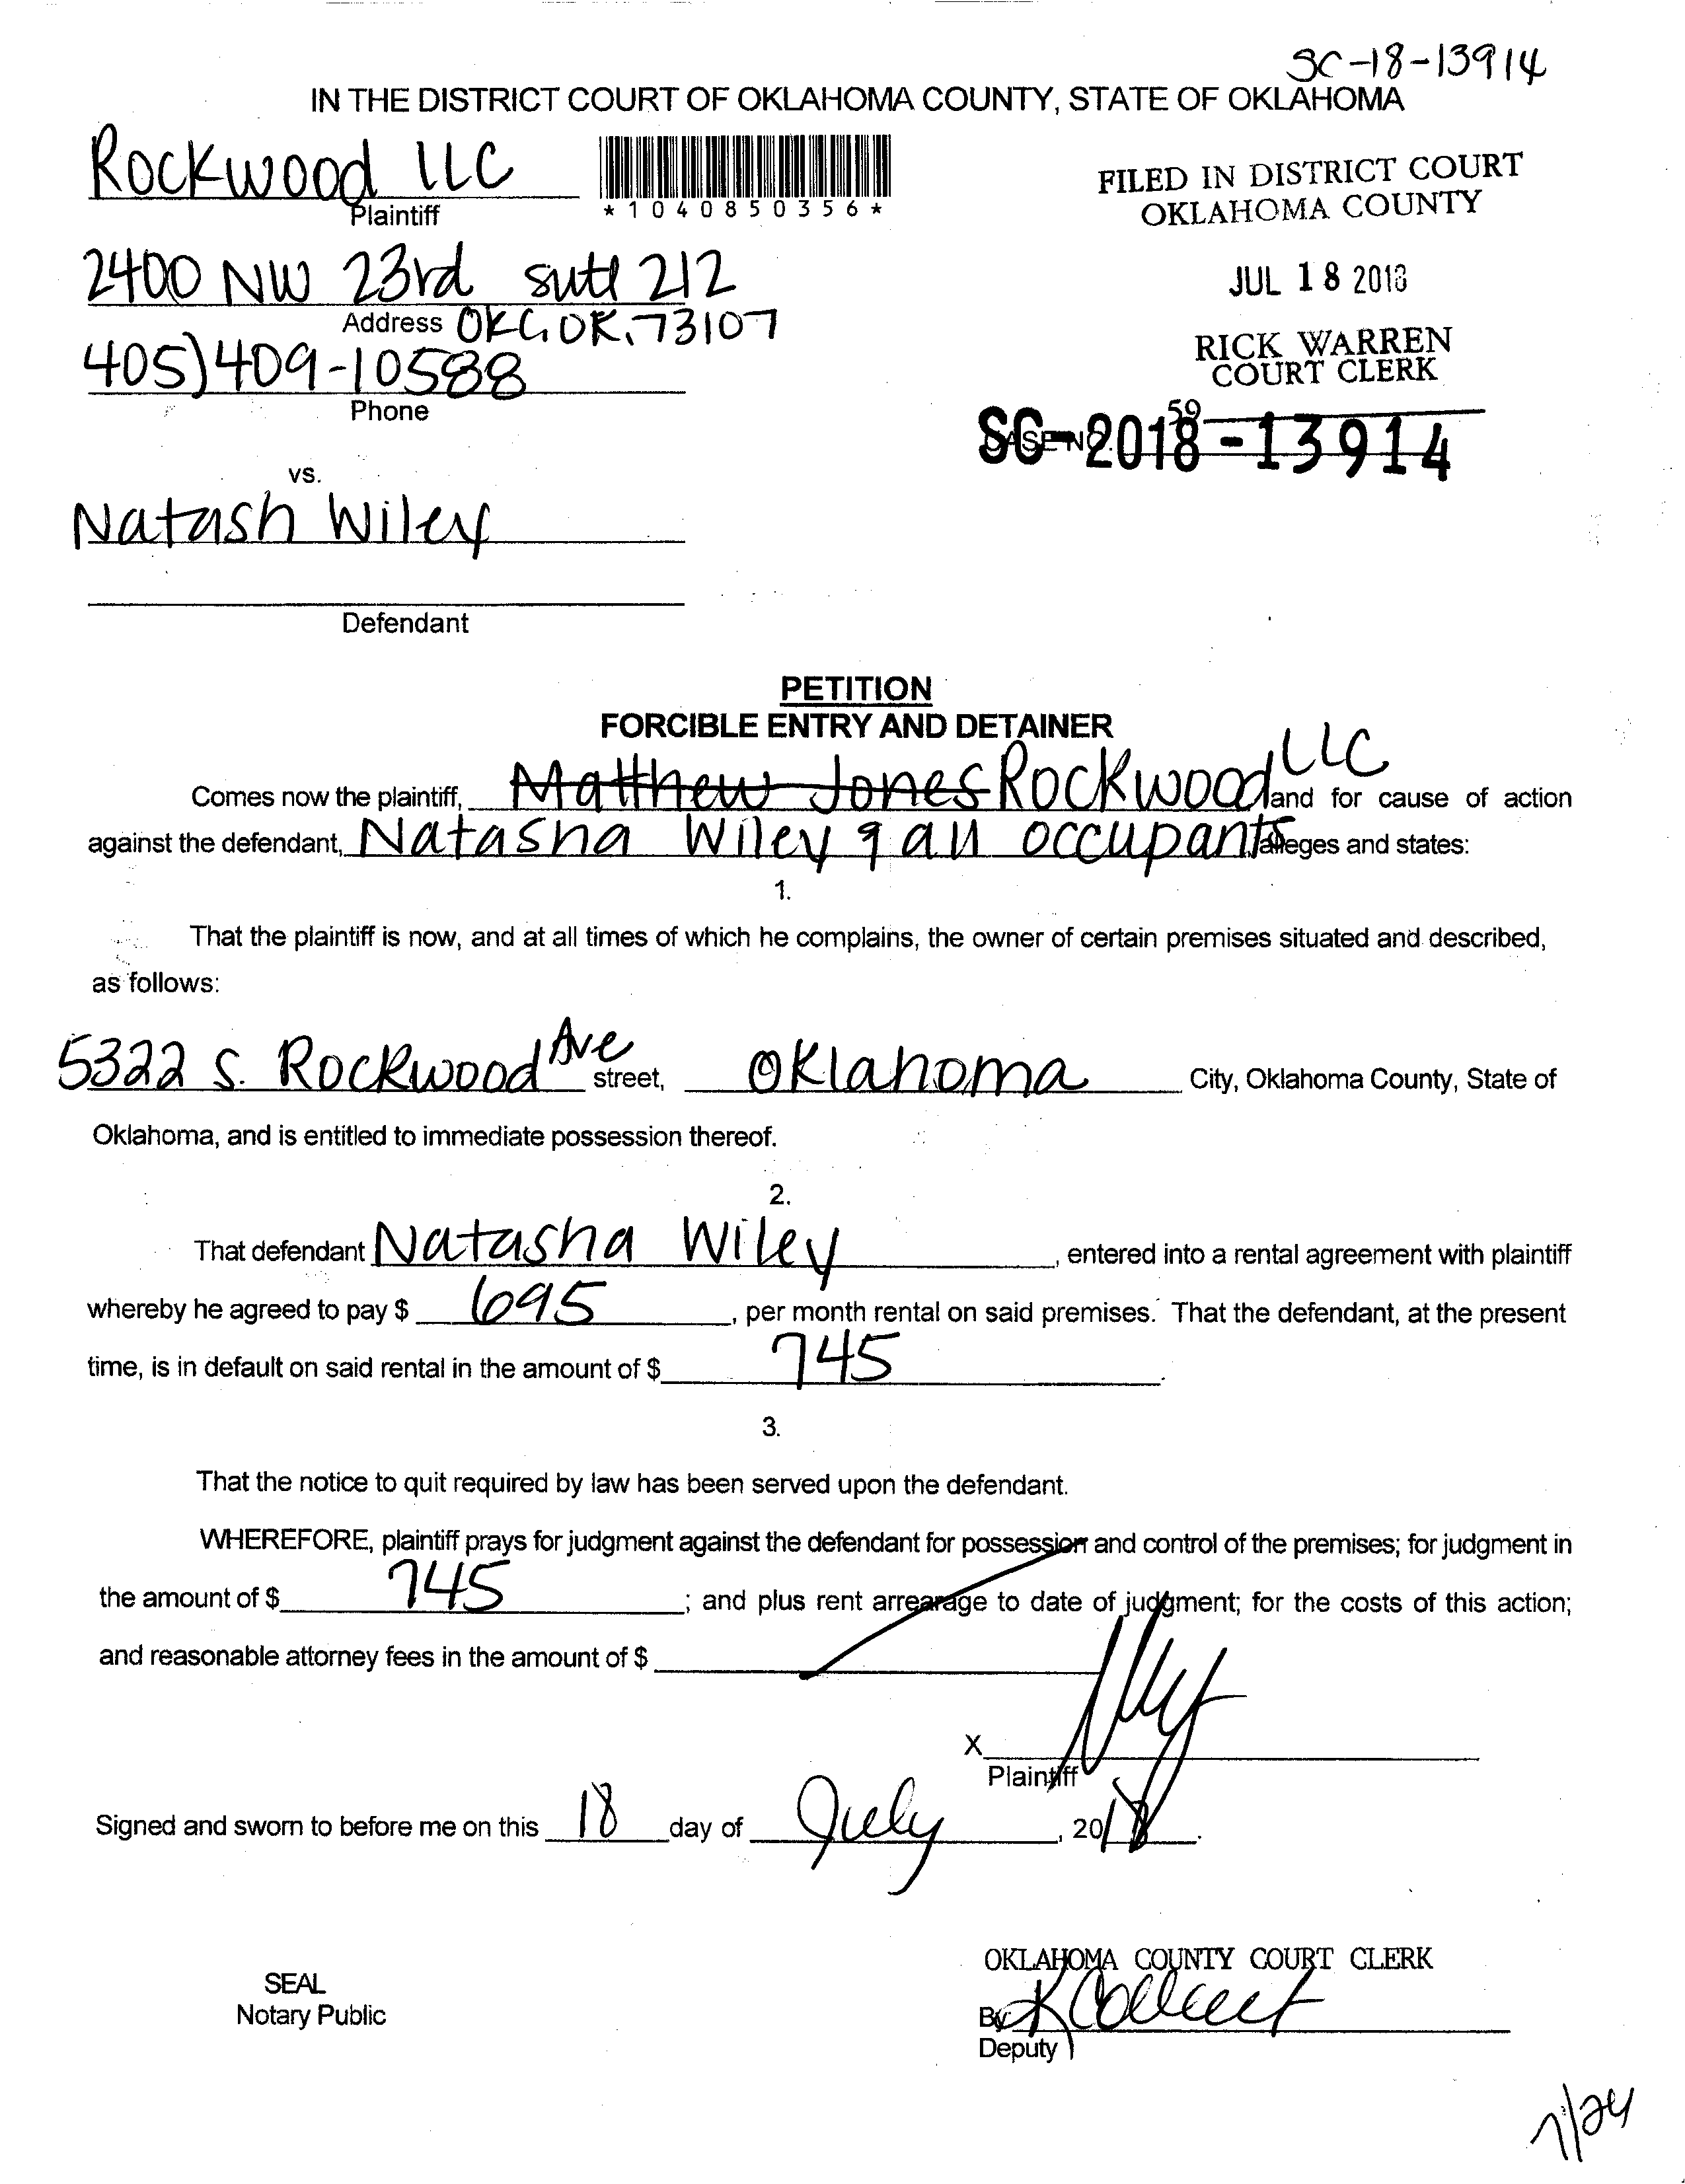 SC-18-13914
IN THE DISTRICT COURT OF OKLAHOMA COUNTY, STATE OF OKLAHOMA
Rockwood LLC
Plaintiff
*1040850356*
FILED IN DISTRICT COURT
OKLAHOMA COUNTY
JUL 18 2018
RICK WARREN
COURT CLERK
59
CASE NO.
SC-2018-13914
2400 NW 23rd sute 212
Address OKC, OK, 73107
405)409-10588
Phone
vs.
Natash Wiley
Defendant
PETITION
FORCIBLE ENTRY AND DETAINER
Comes now the plaintiff, Matthew Jones Rockwood LLC and for cause of action
against the defendant, Natasha Wiley & all occupants, alleges and states:
1.
That the plaintiff is now, and at all times of which he complains, the owner of certain premises situated and described,
as follows:
5322 S. Rockwood Ave street, Oklahoma City, Oklahoma County, State of
Oklahoma, and is entitled to immediate possession thereof.
2.
That defendant Natasha Wiley, entered into a rental agreement with plaintiff
whereby he agreed to pay $ 695, per month rental on said premises. That the defendant, at the present
time, is in default on said rental in the amount of $ 745.
3.
That the notice to quit required by law has been served upon the defendant.
WHEREFORE, plaintiff prays for judgment against the defendant for possession and control of the premises; for judgment in
the amount of $ 745; and plus rent arrearage to date of judgment; for the costs of this action;
and reasonable attorney fees in the amount of $
X
Plaintiff
Signed and sworn to before me on this 18 day of July, 2018.
SEAL
Notary Public
OKLAHOMA COUNTY COURT CLERK
By
Deputy
7/24